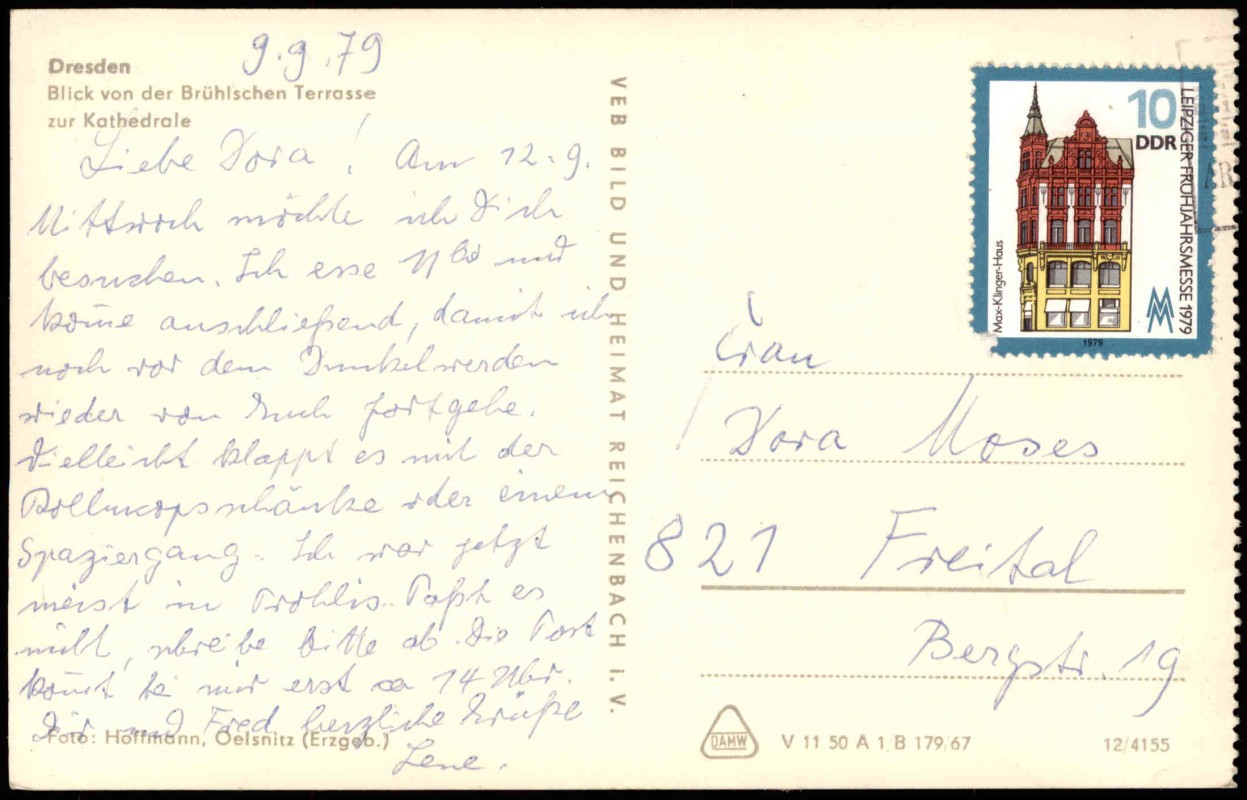 9.9.79
Dresden
Blick von der Brühlschen Terrasse
zur Kathedrale
Liebe Dora! Am 12.9.
Mittwoch möchte ich Dich
besuchen. Ich esse 11 00 und
kom̄e anschließend, damit ich
noch vor dem Dunkelwerden
wieder von Euch fortgehe.
Vielleicht klappt es mit der
Rollmopsschänke oder einem
Spaziergang. Ich war jetzt
meist in Prohlis. Paßt es
nicht, schreibe bitte ab. Die Post
kom̄t bei mir erst ca 14 Uhr.
Dir und Fred herzliche Grüße
Lene.
Foto: Hoffmann, Oelsnitz (Erzgeb.)
VEB BILD UND HEIMAT REICHENBACH I. V.
10
DDR
LEIPZIGER FRÜHJAHRSMESSE 1979
Max-Klinger-Haus
MM
1979
AR
Frau
Dora Moses
821 Freital
Bergstr. 19
DAMW
V 11 50 A 1 B 179/67
12/4155